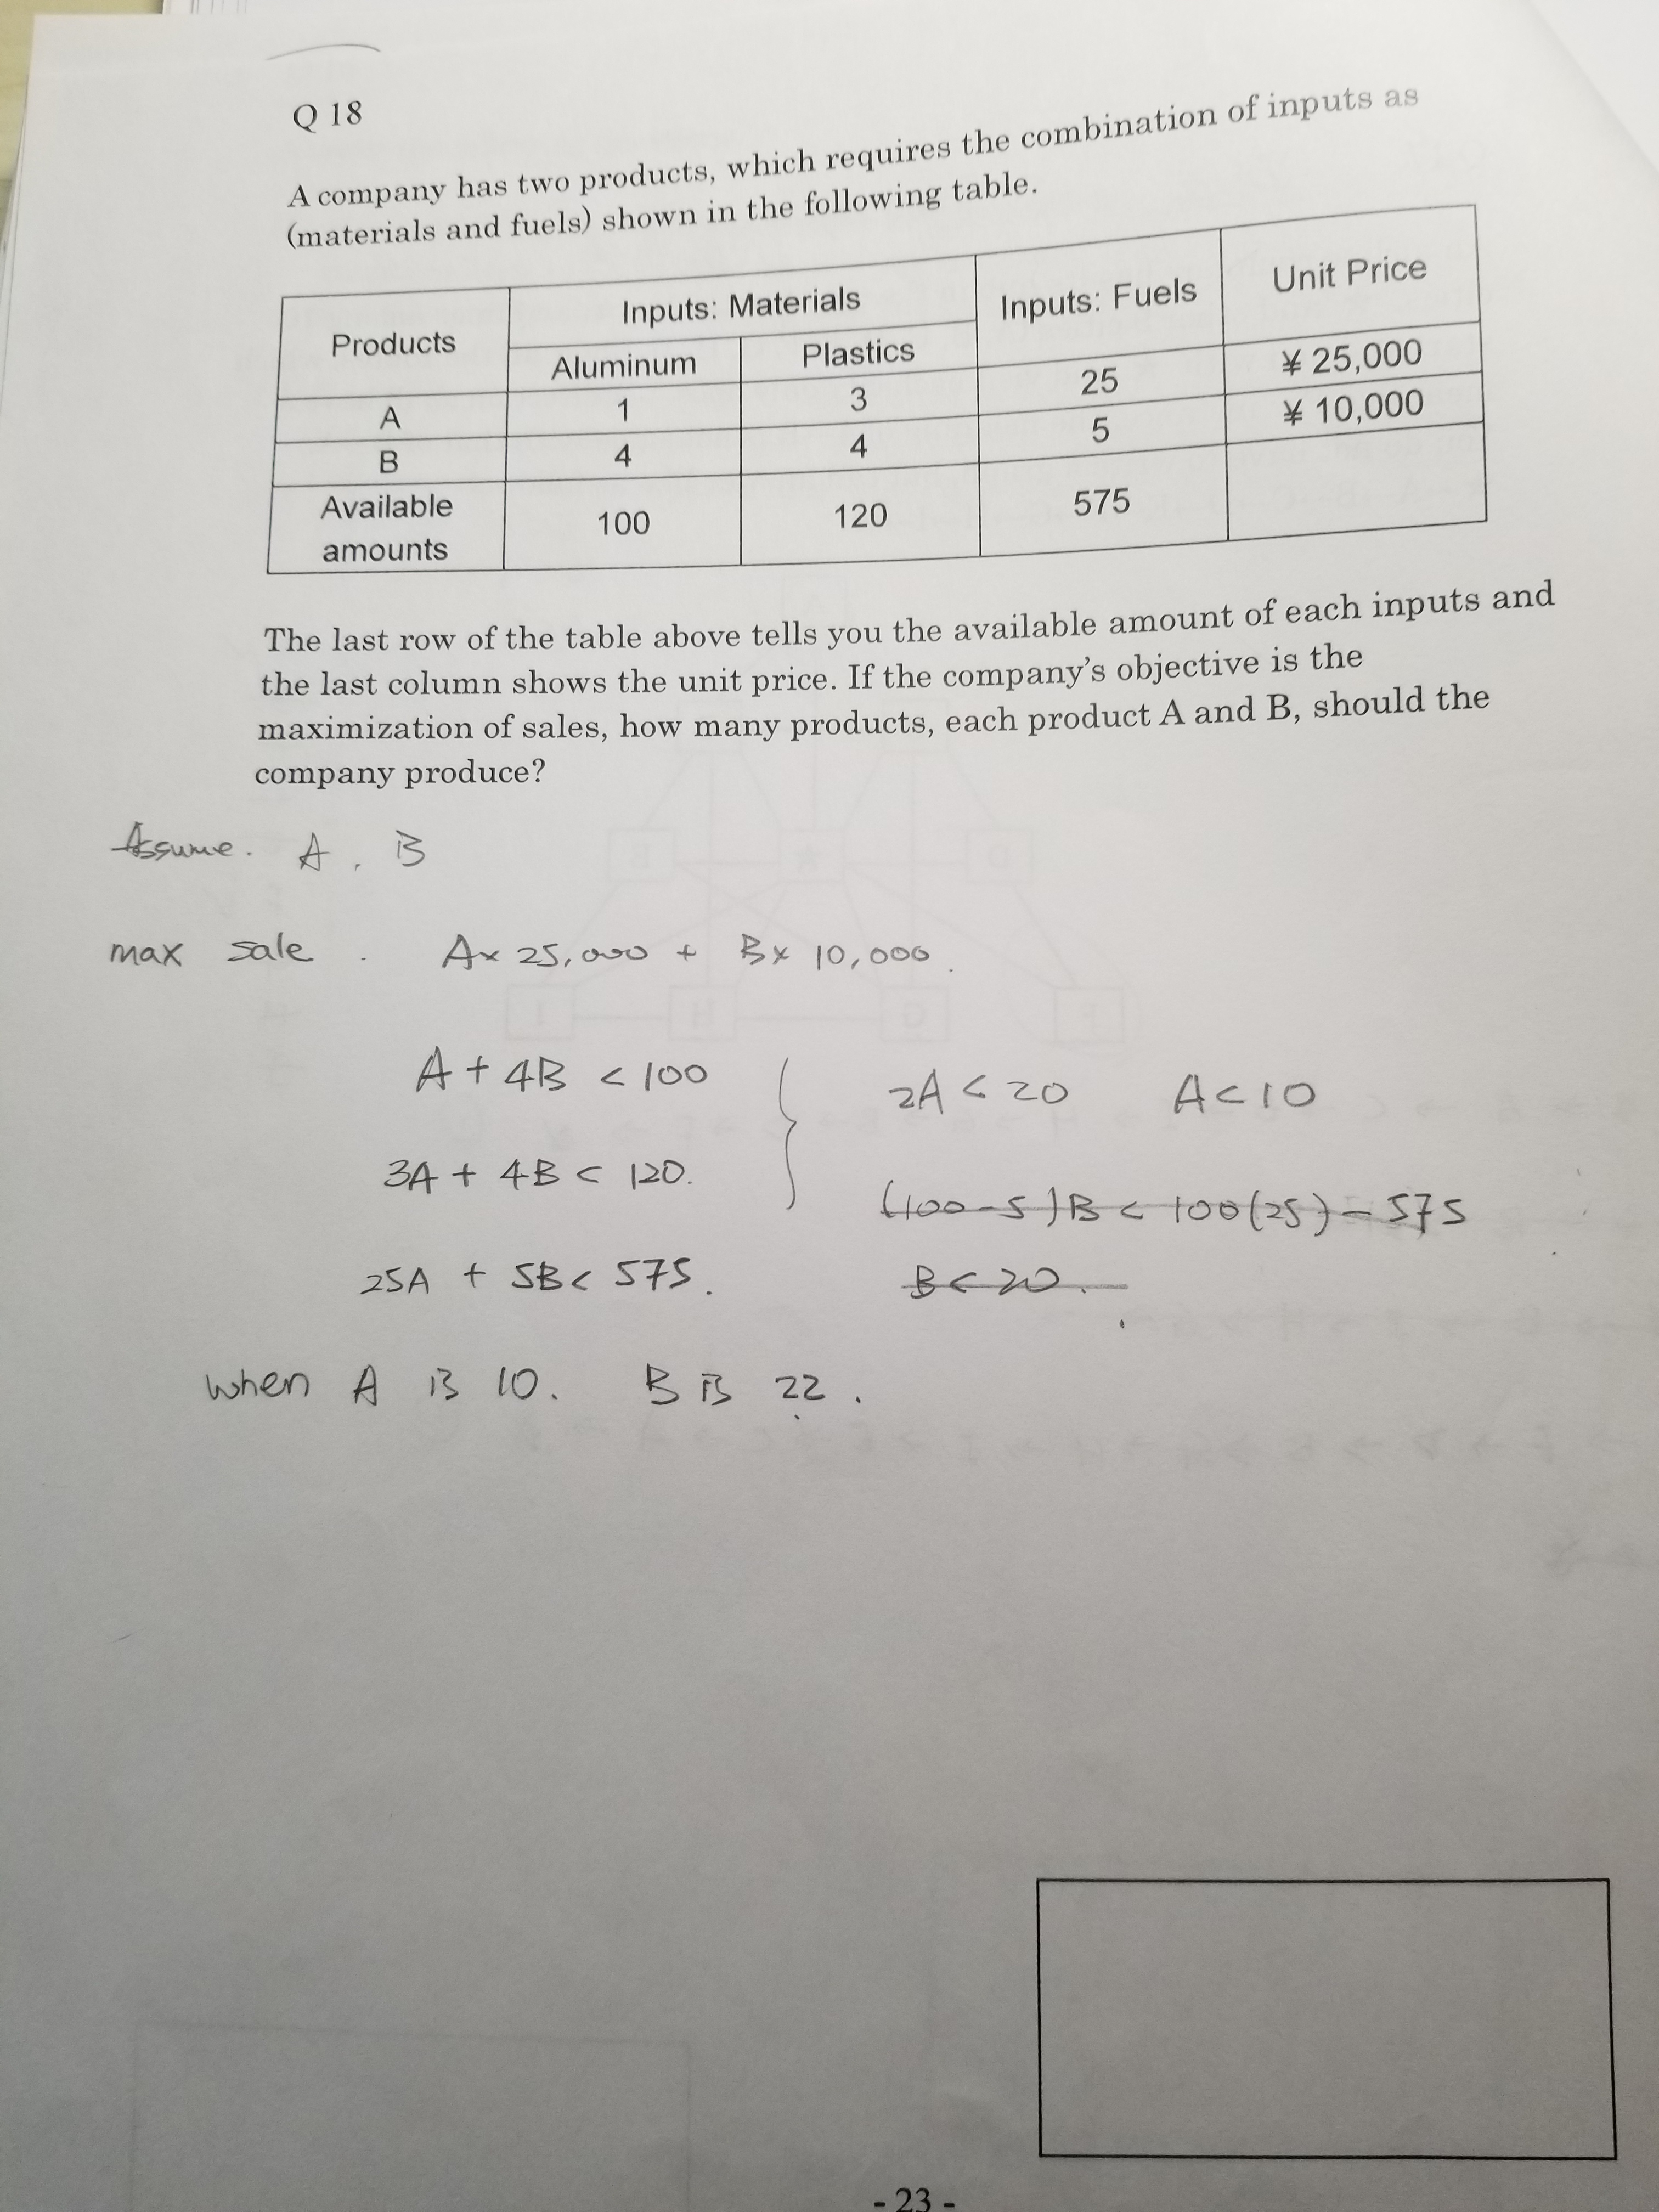 Q 18
A company has two products, which requires the combination of inputs as
(materials and fuels) shown in the following table.
Products
Inputs: Materials
Inputs: Fuels
Unit Price
Aluminum
Plastics
A
1
3
25
¥ 25,000
B
4
4
5
¥ 10,000
Available
amounts
100
120
575
The last row of the table above tells you the available amount of each inputs and
the last column shows the unit price. If the company's objective is the
maximization of sales, how many products, each product A and B, should the
company produce?
Assume. A, B
max sale. A × 25,000 + B × 10,000.
A + 4B < 100
2A < 20 A < 10
3A + 4B < 120.
(100-5)B < 100(25) - 575
25A + 5B < 575.
B < 20.
when A is 10. B is 22.
- 23 -